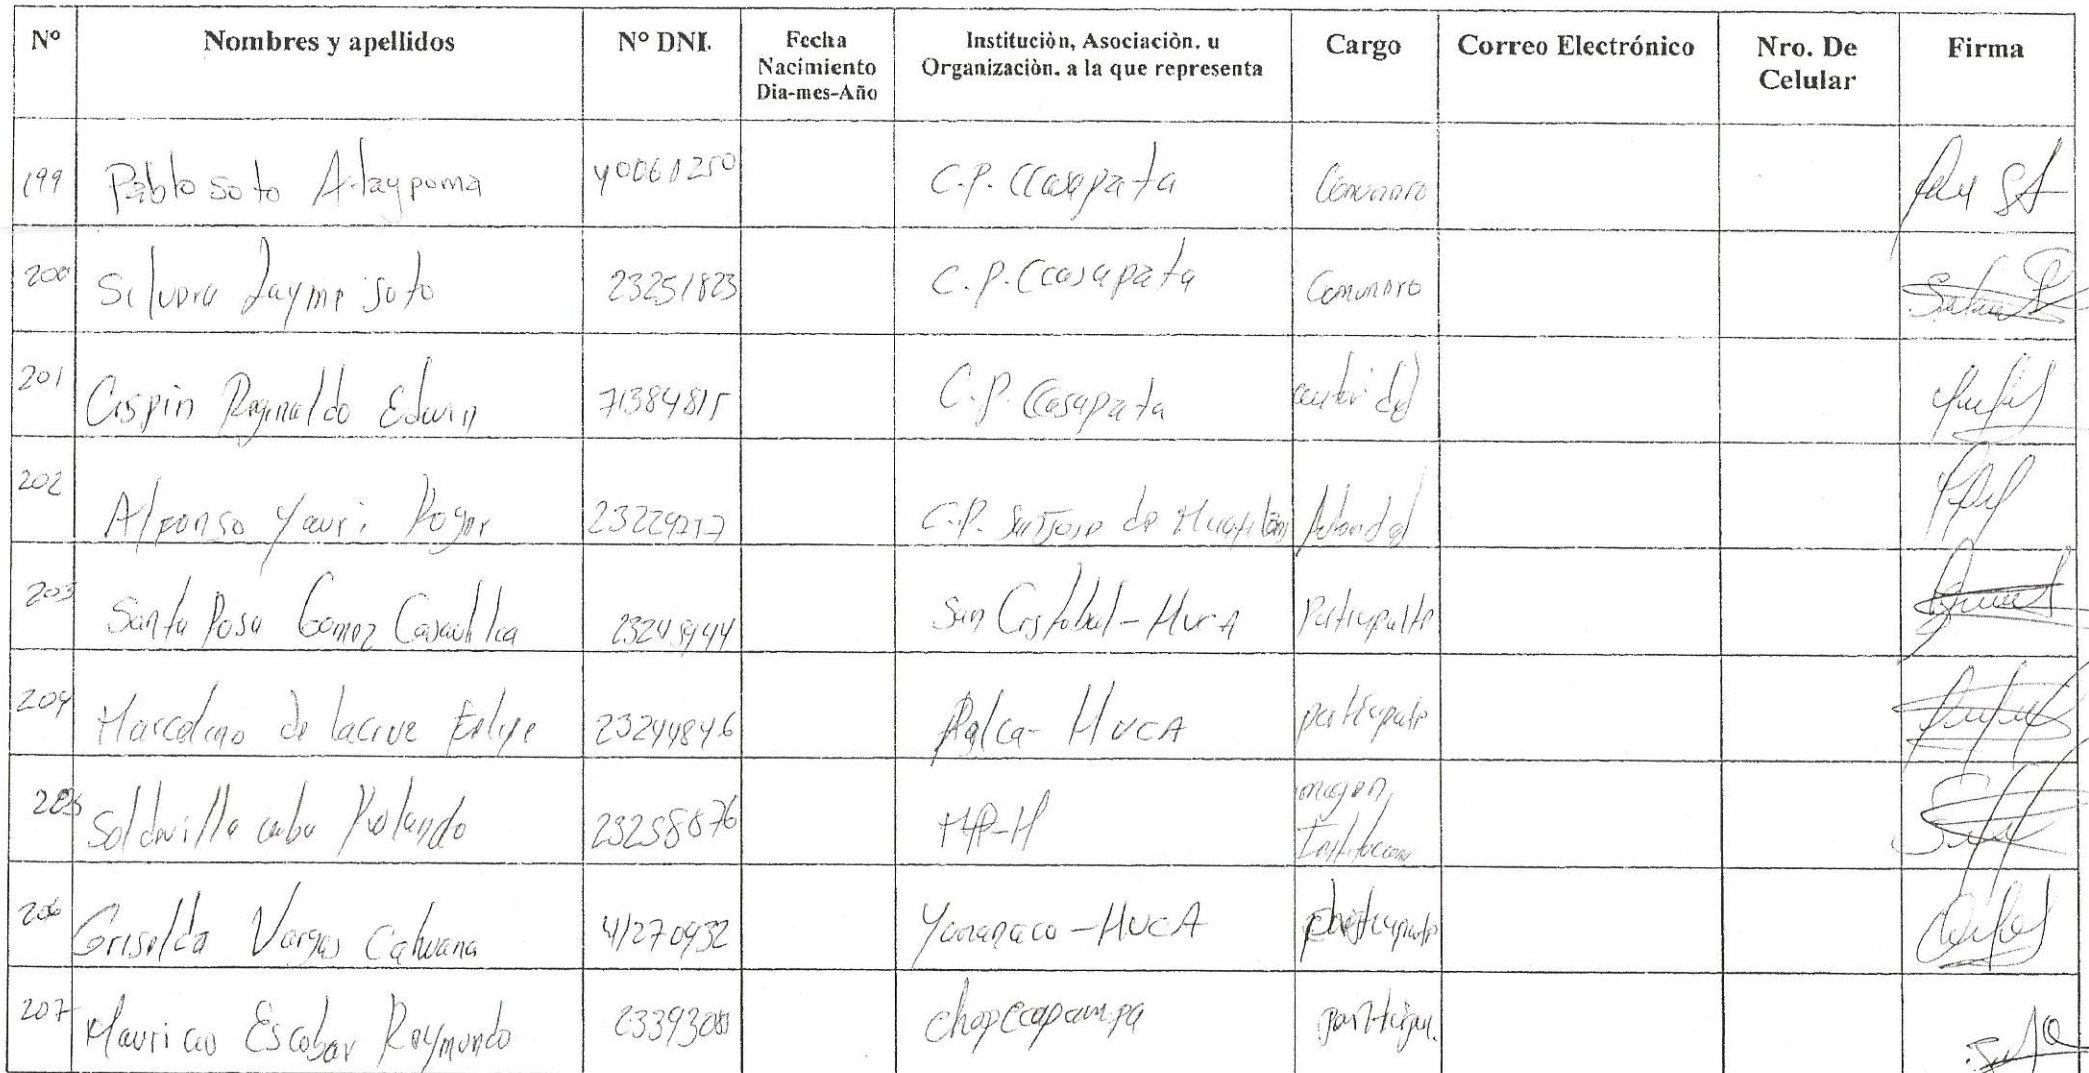 Nº Nombres y apellidos Nº DNI. Fecha Nacimiento Dia-mes-Año Instituciòn, Asociaciòn. u Organizaciòn. a la que representa Cargo Correo Electrónico Nro. De Celular Firma
199 Pablo Soto Ataypoma 40061250 C.P. Ccasapata Comunero
200 Layme Soto 23251823 C.P. Ccasapata Comunero
201 Crispin Reginaldo Edwin 71384815 C.P. Ccasapata autoridad
202 Alfonso Yauri Roger C.P. San Jose de Autoridad
203 Santa Rosa Gomez San Cristobal - HvcA Participante
204 Marcelino de la cruz Felipe 23244846 Palca - HVCA participante
205 Soldevilla Rolando 23258876 MP-H imagen Institucion
206 Griselda Vargas Cahuana 41270932 Yananaco - HVCA participante
207 Mauricio Escobar Raymundo Chopccapampa particip.